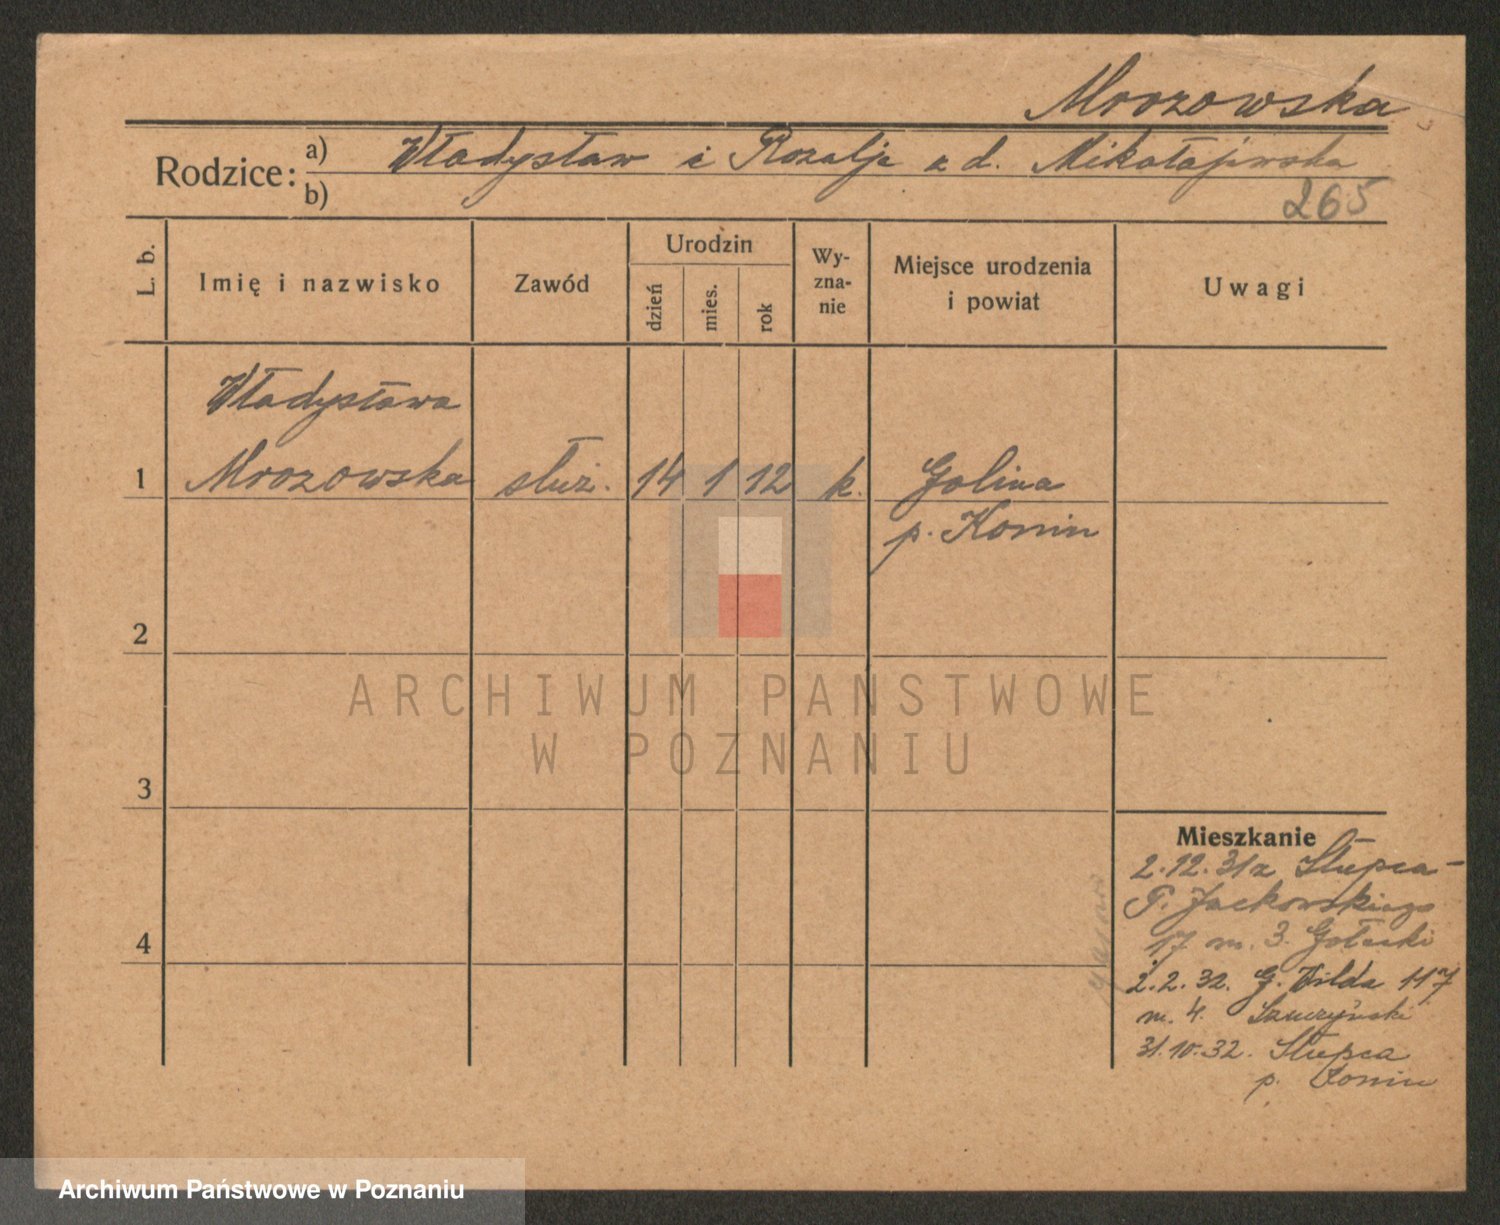 Mrozowska
Rodzice: a) Władysław i Rozalja z d. Mikołajewska
b)
265
L. b.
Imię i nazwisko
Zawód
Urodzin
dzień
mies.
rok
Wy-
zna-
nie
Miejsce urodzenia
i powiat
Uwagi
Władysława
1 Mrozowska służ. 14 1 12 k. Golina
p. Konin
2
ARCHIWUM PANSTWOWE
W POZNANIU
3
Mieszkanie
2.12.31 z Słupca-
P. Jackowskiego
17 m. 3.
4
2.2.32. G. Wilda 117
m. 4.
31.10.32. Słupca
p. Konin
Archiwum Państwowe w Poznaniu